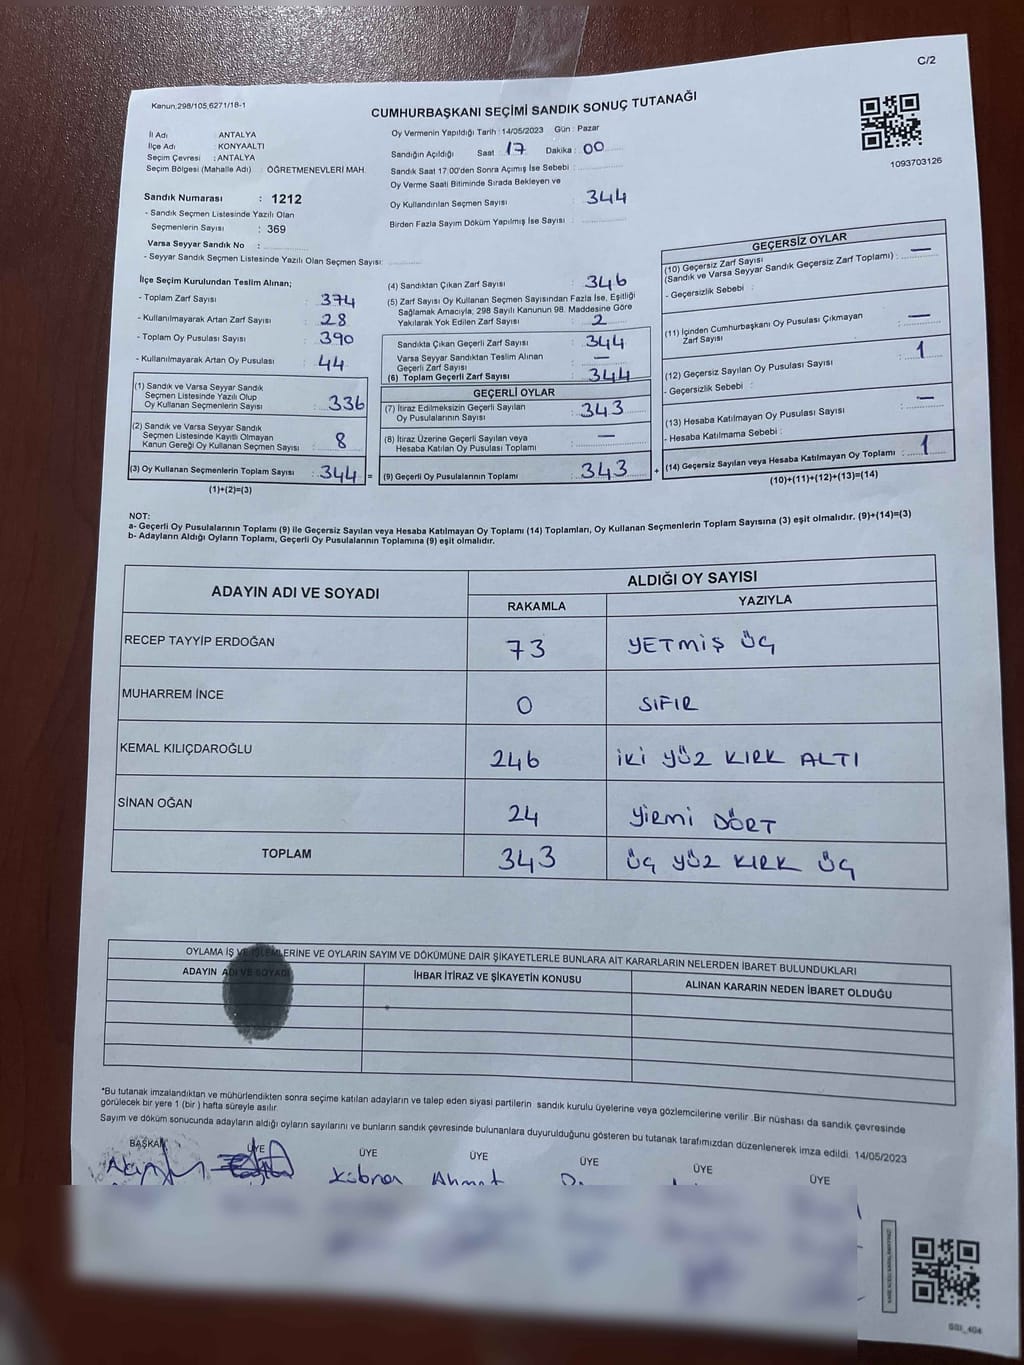 C/2
Kanun;298/105,6271/18-1
CUMHURBAŞKANI SEÇİMİ SANDIK SONUÇ TUTANAĞI
1093703126
İl Adı : ANTALYA
İlçe Adı : KONYAALTI
Seçim Çevresi : ANTALYA
Seçim Bölgesi (Mahalle Adı) : ÖĞRETMENEVLERİ MAH.
Sandık Numarası : 1212
- Sandık Seçmen Listesinde Yazılı Olan
Seçmenlerin Sayısı : 369
Varsa Seyyar Sandık No :
- Seyyar Sandık Seçmen Listesinde Yazılı Olan Seçmen Sayısı:
Oy Vermenin Yapıldığı Tarih : 14/05/2023 Gün : Pazar
Sandığın Açıldığı Saat : 17 Dakika : 00
Sandık Saat 17:00'den Sonra Açımış İse Sebebi :
Oy Verme Saati Bitiminde Sırada Bekleyen ve
Oy Kullandırılan Seçmen Sayısı : 344
Birden Fazla Sayım Döküm Yapılmış İse Sayısı :
İlçe Seçim Kurulundan Teslim Alınan;
- Toplam Zarf Sayısı : 374
- Kullanılmayarak Artan Zarf Sayısı : 28
- Toplam Oy Pusulası Sayısı : 390
- Kullanılmayarak Artan Oy Pusulası : 44
(1) Sandık ve Varsa Seyyar Sandık
Seçmen Listesinde Yazılı Olup
Oy Kullanan Seçmenlerin Sayısı : 336
(2) Sandık ve Varsa Seyyar Sandık
Seçmen Listesinde Kayıtlı Olmayan
Kanun Gereği Oy Kullanan Seçmen Sayısı : 8
(3) Oy Kullanan Seçmenlerin Toplam Sayısı : 344 =
(1)+(2)=(3)
(4) Sandıktan Çıkan Zarf Sayısı : 346
(5) Zarf Sayısı Oy Kullanan Seçmen Sayısından Fazla İse, Eşitliği
Sağlamak Amacıyla; 298 Sayılı Kanunun 98. Maddesine Göre
Yakılarak Yok Edilen Zarf Sayısı : 2
Sandıkta Çıkan Geçerli Zarf Sayısı : 344
Varsa Seyyar Sandıktan Teslim Alınan
Geçerli Zarf Sayısı : —
(6) Toplam Geçerli Zarf Sayısı : 344
GEÇERLİ OYLAR
(7) İtiraz Edilmeksizin Geçerli Sayılan
Oy Pusulalarının Sayısı : 343
(8) İtiraz Üzerine Geçerli Sayılan veya
Hesaba Katılan Oy Pusulası Toplamı : —
(9) Geçerli Oy Pusulalarının Toplamı : 343 +
GEÇERSİZ OYLAR
(10) Geçersiz Zarf Sayısı
(Sandık ve Varsa Seyyar Sandık Geçersiz Zarf Toplamı) : —
- Geçersizlik Sebebi :
(11) İçinden Cumhurbaşkanı Oy Pusulası Çıkmayan
Zarf Sayısı : —
(12) Geçersiz Sayılan Oy Pusulası Sayısı : 1
- Geçersizlik Sebebi :
(13) Hesaba Katılmayan Oy Pusulası Sayısı : —
- Hesaba Katılmama Sebebi :
(14) Geçersiz Sayılan veya Hesaba Katılmayan Oy Toplamı : 1
(10)+(11)+(12)+(13)=(14)
NOT:
a- Geçerli Oy Pusulalarının Toplamı (9) ile Geçersiz Sayılan veya Hesaba Katılmayan Oy Toplamı (14) Toplamları, Oy Kullanan Seçmenlerin Toplam Sayısına (3) eşit olmalıdır. (9)+(14)=(3)
b- Adayların Aldığı Oyların Toplamı, Geçerli Oy Pusulalarının Toplamına (9) eşit olmalıdır.
ADAYIN ADI VE SOYADI ALDIĞI OY SAYISI
RAKAMLA YAZIYLA
RECEP TAYYİP ERDOĞAN 73 YETMİŞ ÜÇ
MUHARREM İNCE 0 SIFIR
KEMAL KILIÇDAROĞLU 246 İKİ YÜZ KIRK ALTI
SİNAN OĞAN 24 YİRMİ DÖRT
TOPLAM 343 ÜÇ YÜZ KIRK ÜÇ
OYLAMA İŞ VE İŞLEMLERİNE VE OYLARIN SAYIM VE DÖKÜMÜNE DAİR ŞİKAYETLERLE BUNLARA AİT KARARLARIN NELERDEN İBARET BULUNDUKLARI
ADAYIN ADI VE SOYADI İHBAR İTİRAZ VE ŞİKAYETİN KONUSU ALINAN KARARIN NEDEN İBARET OLDUĞU
*Bu tutanak imzalandıktan ve mühürlendikten sonra seçime katılan adayların ve talep eden siyasi partilerin sandık kurulu üyelerine veya gözlemcilerine verilir .Bir nüshası da sandık çevresinde
görülecek bir yere 1 (bir ) hafta süreyle asılır.
Sayım ve döküm sonucunda adayların aldığı oyların sayılarını ve bunların sandık çevresinde bulunanlara duyurulduğunu gösteren bu tutanak tarafımızdan düzenlenerek imza edildi. 14/05/2023
BAŞKAN ÜYE ÜYE ÜYE ÜYE ÜYE ÜYE
Kübra Ahmet